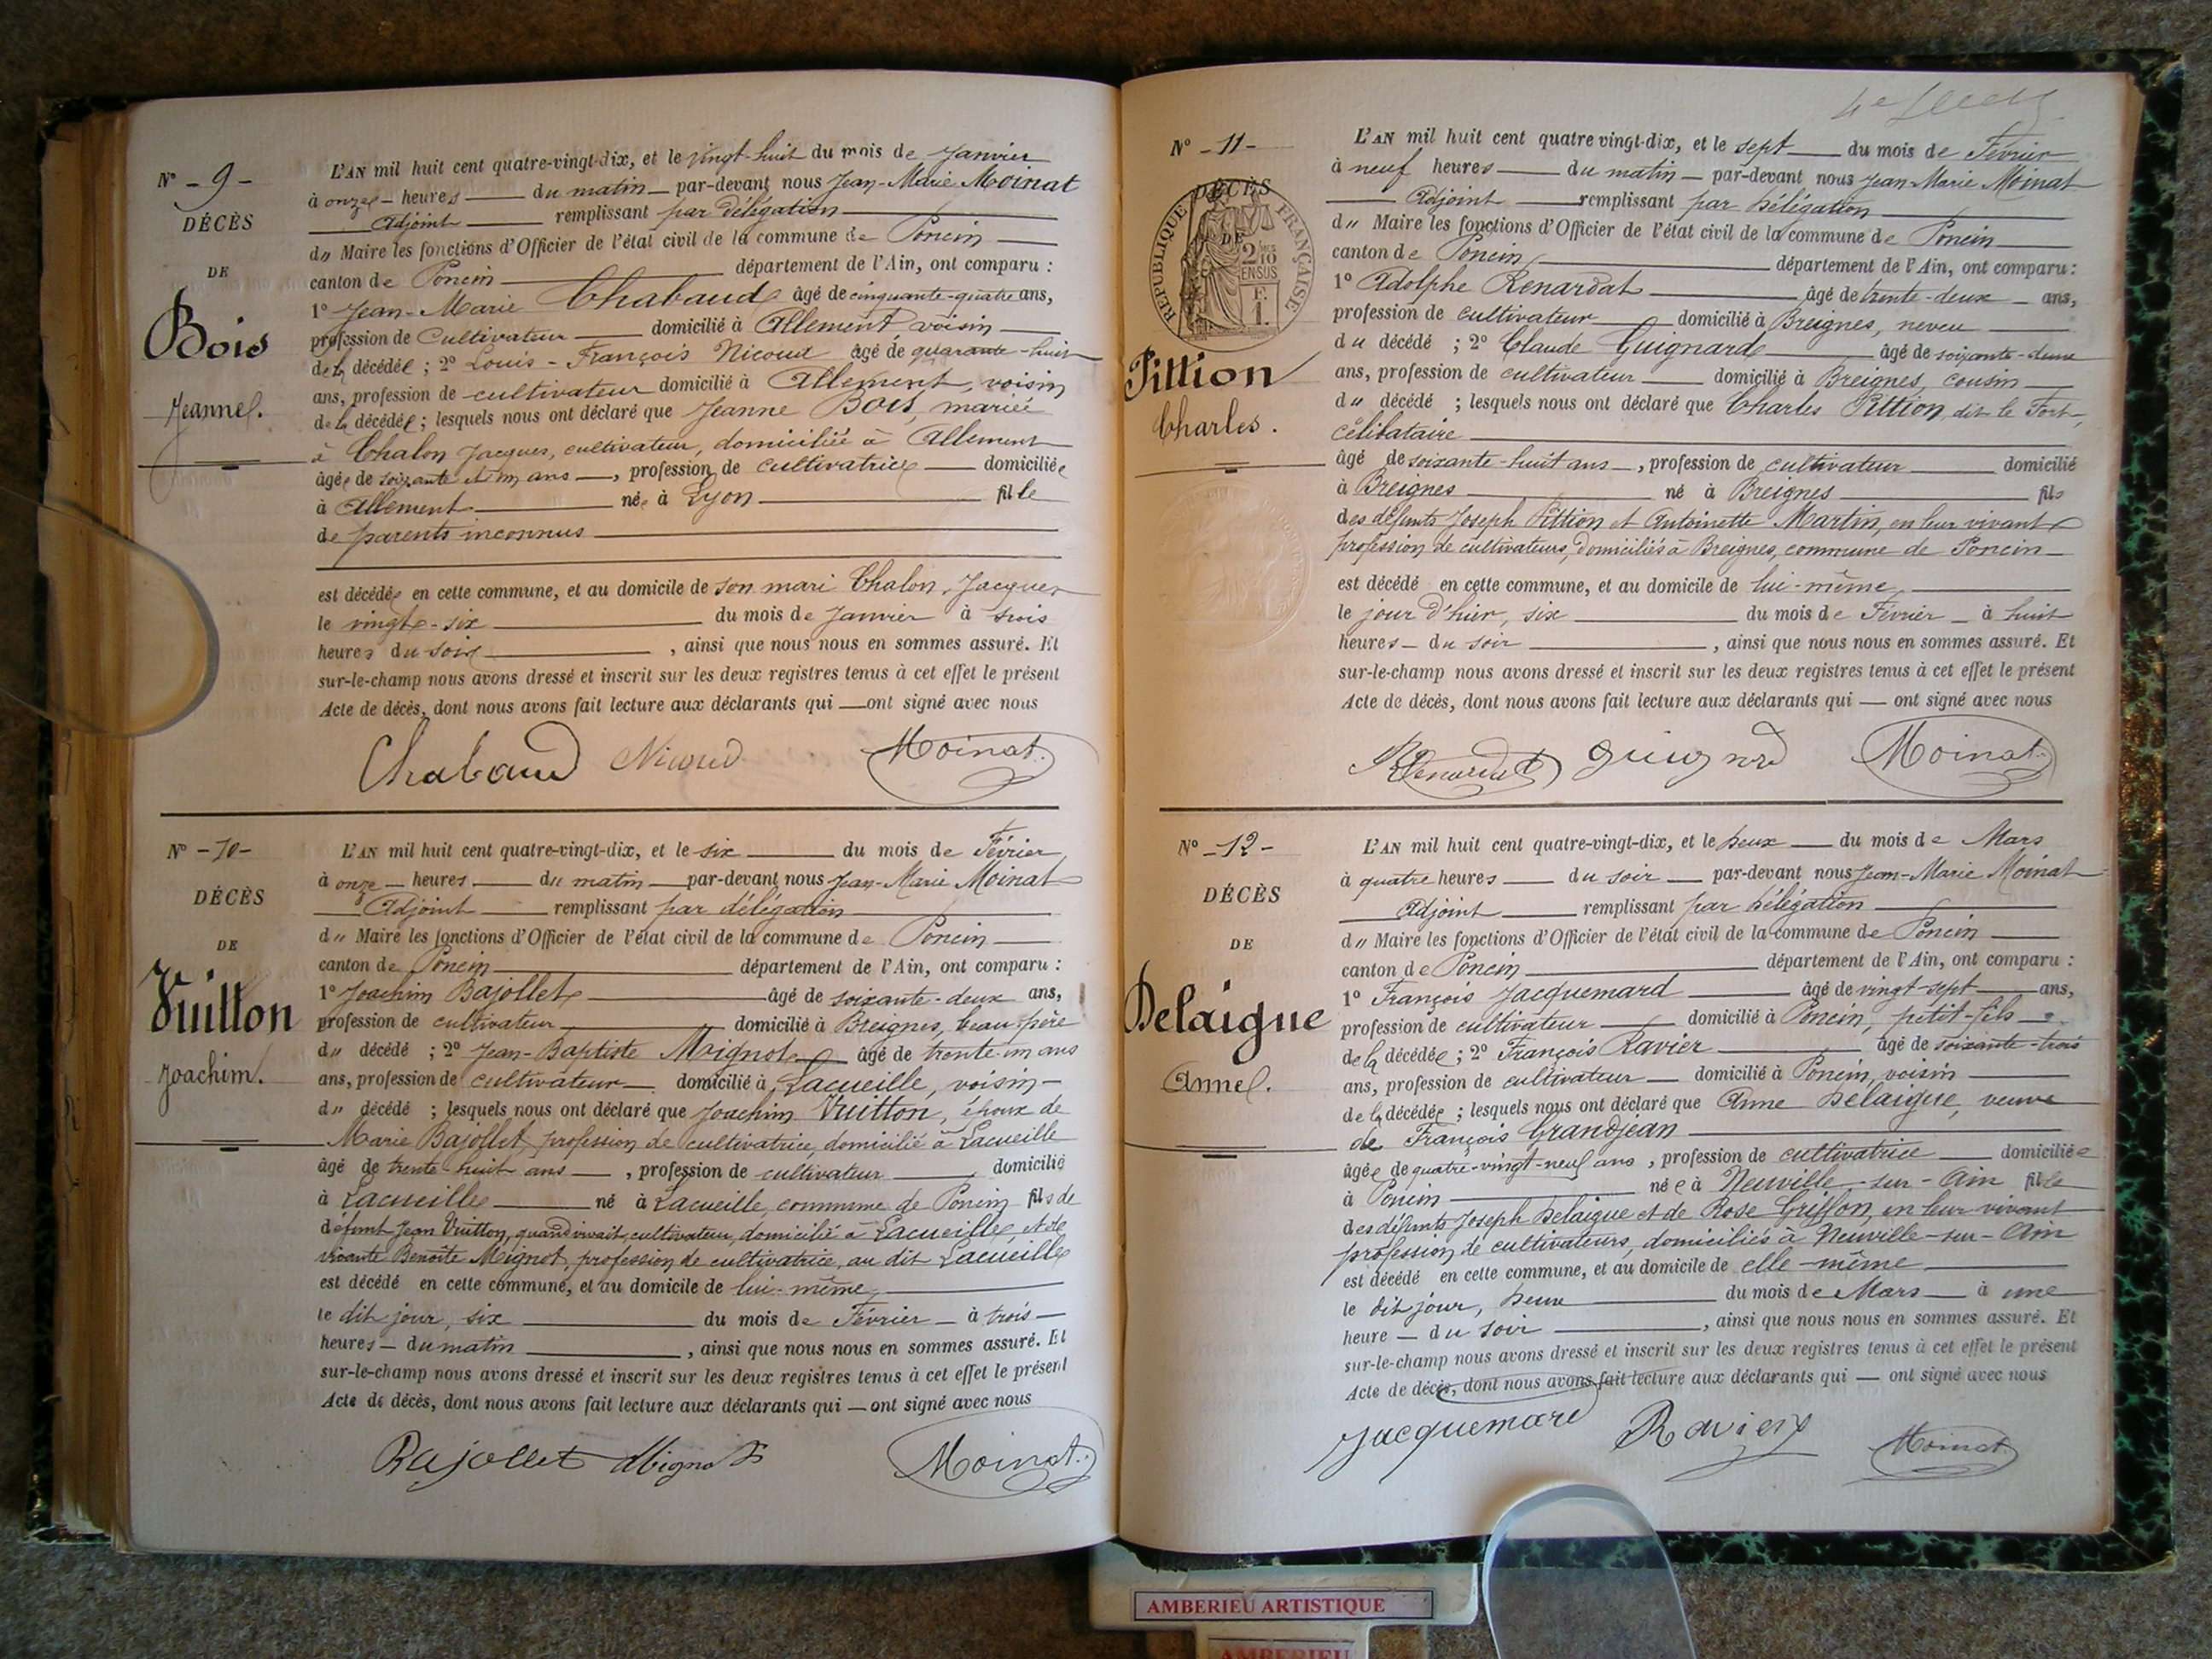 N° - 9 -
DÉCÈS
DE
Bois
Jeanne.
L'AN mil huit cent quatre-vingt-dix, et le vingt-huit du mois de Janvier
à onze heures du matin par-devant nous Jean-Marie Moinat
Adjoint remplissant par délégation
du Maire les fonctions d'Officier de l'état civil de la commune de Poncin
canton de Poncin département de l'Ain, ont comparu :
1° Jean-Marie Chabaud âgé de cinquante-quatre ans,
profession de Cultivateur domicilié à Allement voisin
de la décédée ; 2° Louis-François Nicoud âgé de quarante-huit
ans, profession de cultivateur domicilié à Allement, voisin
de la décédée ; lesquels nous ont déclaré que Jeanne Bois, mariée
à Chalon Jacques, cultivateur, domiciliée à Allement
âgée de soixante et un ans, profession de cultivatrice domiciliée
à Allement née à Lyon fille
de parents inconnus
est décédée en cette commune, et au domicile de son mari Chalon, Jacques
le vingt-six du mois de Janvier à trois
heures du soir, ainsi que nous nous en sommes assuré. Et
sur-le-champ nous avons dressé et inscrit sur les deux registres tenus à cet effet le présent
Acte de décès, dont nous avons fait lecture aux déclarants qui ont signé avec nous
Chabaud Nicoud Moinat
N° - 10 -
DÉCÈS
DE
Vuitton
Joachim.
L'AN mil huit cent quatre-vingt-dix, et le six du mois de Février
à onze heures du matin par-devant nous Jean-Marie Moinat
Adjoint remplissant par délégation
du Maire les fonctions d'Officier de l'état civil de la commune de Poncin
canton de Poncin département de l'Ain, ont comparu :
1° Joachim Bajollet âgé de soixante-deux ans,
profession de cultivateur domicilié à Breignes, beau-père
du décédé ; 2° Jean-Baptiste Mignot âgé de trente-un ans
ans, profession de cultivateur domicilié à Lacueille, voisin
du décédé ; lesquels nous ont déclaré que Joachim Vuitton, époux de
Marie Bajollet, profession de cultivatrice, domicilié à Lacueille
âgé de trente-huit ans, profession de cultivateur domicilié
à Lacueille né à Lacueille, commune de Poncin fils de
défunt Jean Vuitton, quand vivait, cultivateur, domicilié à Lacueille, et de
vivante Benoîte Mignot, profession de cultivatrice, au dit Lacueille
est décédé en cette commune, et au domicile de lui-même
le dit jour, six du mois de Février à trois
heures du matin, ainsi que nous nous en sommes assuré. Et
sur-le-champ nous avons dressé et inscrit sur les deux registres tenus à cet effet le présent
Acte de décès, dont nous avons fait lecture aux déclarants qui ont signé avec nous
Bajollet Mignot Moinat
N° - 11 -
RÉPUBLIQUE FRANÇAISE
DÉCÈS
DE
2 10
EN SUS
Pittion
Charles.
L'AN mil huit cent quatre vingt-dix, et le sept du mois de Février
à neuf heures du matin par-devant nous Jean-Marie Moinat
Adjoint remplissant par délégation
du Maire les fonctions d'Officier de l'état civil de la commune de Poncin
canton de Poncin département de l'Ain, ont comparu :
1° Adolphe Renardat âgé de trente-deux ans,
profession de cultivateur domicilié à Breignes, neveu
du décédé ; 2° Claude Guignard âgé de soixante-deux
ans, profession de cultivateur domicilié à Breignes, cousin
du décédé ; lesquels nous ont déclaré que Charles Pittion, dit le Fort,
célibataire
âgé de soixante-huit ans, profession de cultivateur domicilié
à Breignes né à Breignes fils
des défunts Joseph Pittion et Antoinette Martin, en leur vivant
profession de cultivateurs, domiciliés à Breignes, commune de Poncin
est décédé en cette commune, et au domicile de lui-même
le jour d'hier, six du mois de Février à huit
heures du soir, ainsi que nous nous en sommes assuré. Et
sur-le-champ nous avons dressé et inscrit sur les deux registres tenus à cet effet le présent
Acte de décès, dont nous avons fait lecture aux déclarants qui ont signé avec nous
Renardat Guignard Moinat
N° - 12 -
DÉCÈS
DE
Delaigue
Anne.
L'AN mil huit cent quatre-vingt-dix, et le deux du mois de Mars
à quatre heures du soir par-devant nous Jean-Marie Moinat
Adjoint remplissant par délégation
du Maire les fonctions d'Officier de l'état civil de la commune de Poncin
canton de Poncin département de l'Ain, ont comparu :
1° François Jacquemard âgé de vingt-sept ans,
profession de cultivateur domicilié à Poncin, petit-fils
de la décédée ; 2° François Ravier âgé de soixante-trois
ans, profession de cultivateur domicilié à Poncin, voisin
de la décédée ; lesquels nous ont déclaré que Anne Delaigue, veuve
de François Grandjean
âgée de quatre-vingt-neuf ans, profession de cultivatrice domiciliée
à Poncin née à Neuville-sur-Ain fille
des défunts Joseph Delaigue et de Rose Griffon, en leur vivant
profession de cultivateurs, domiciliés à Neuville-sur-Ain
est décédé en cette commune, et au domicile de elle-même
le dit jour, deux du mois de Mars à une
heure du soir, ainsi que nous nous en sommes assuré. Et
sur-le-champ nous avons dressé et inscrit sur les deux registres tenus à cet effet le présent
Acte de décès, dont nous avons fait lecture aux déclarants qui ont signé avec nous
Jacquemard Ravier Moinat
AMBERIEU ARTISTIQUE
AMBERIEU